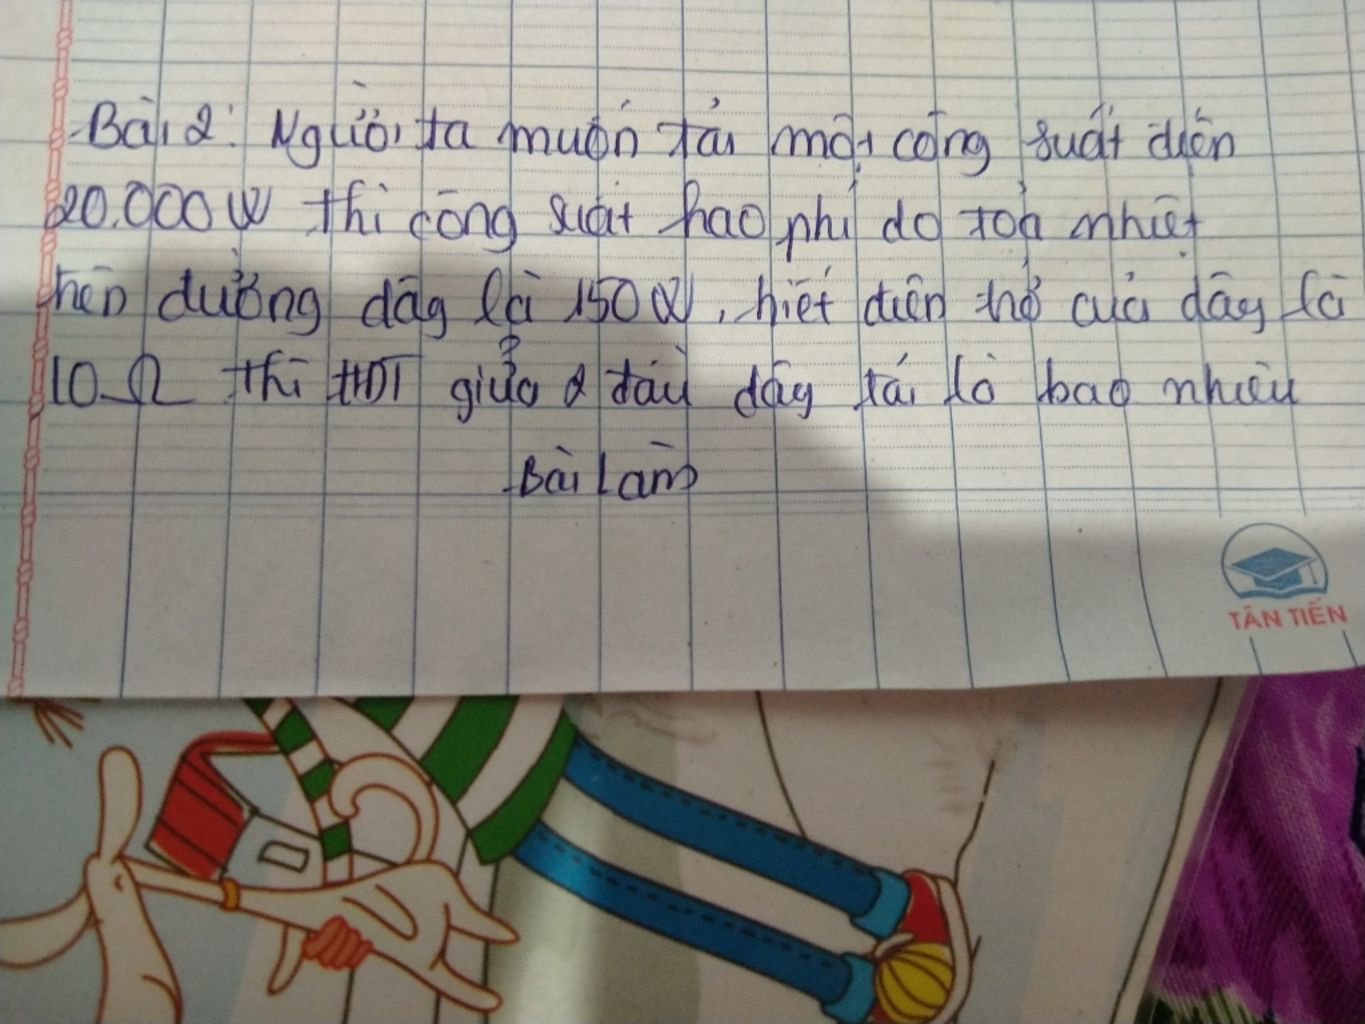 Bài 2: Người ta muốn tải một công suất điện
20.000W thì công suất hao phí do toả nhiệt
trên đường dây là 150W, biết điện trở của dây là
10Ω thì HĐT giữa 2 đầu dây tải là bao nhiêu
Bài làm
TÂN TIẾN